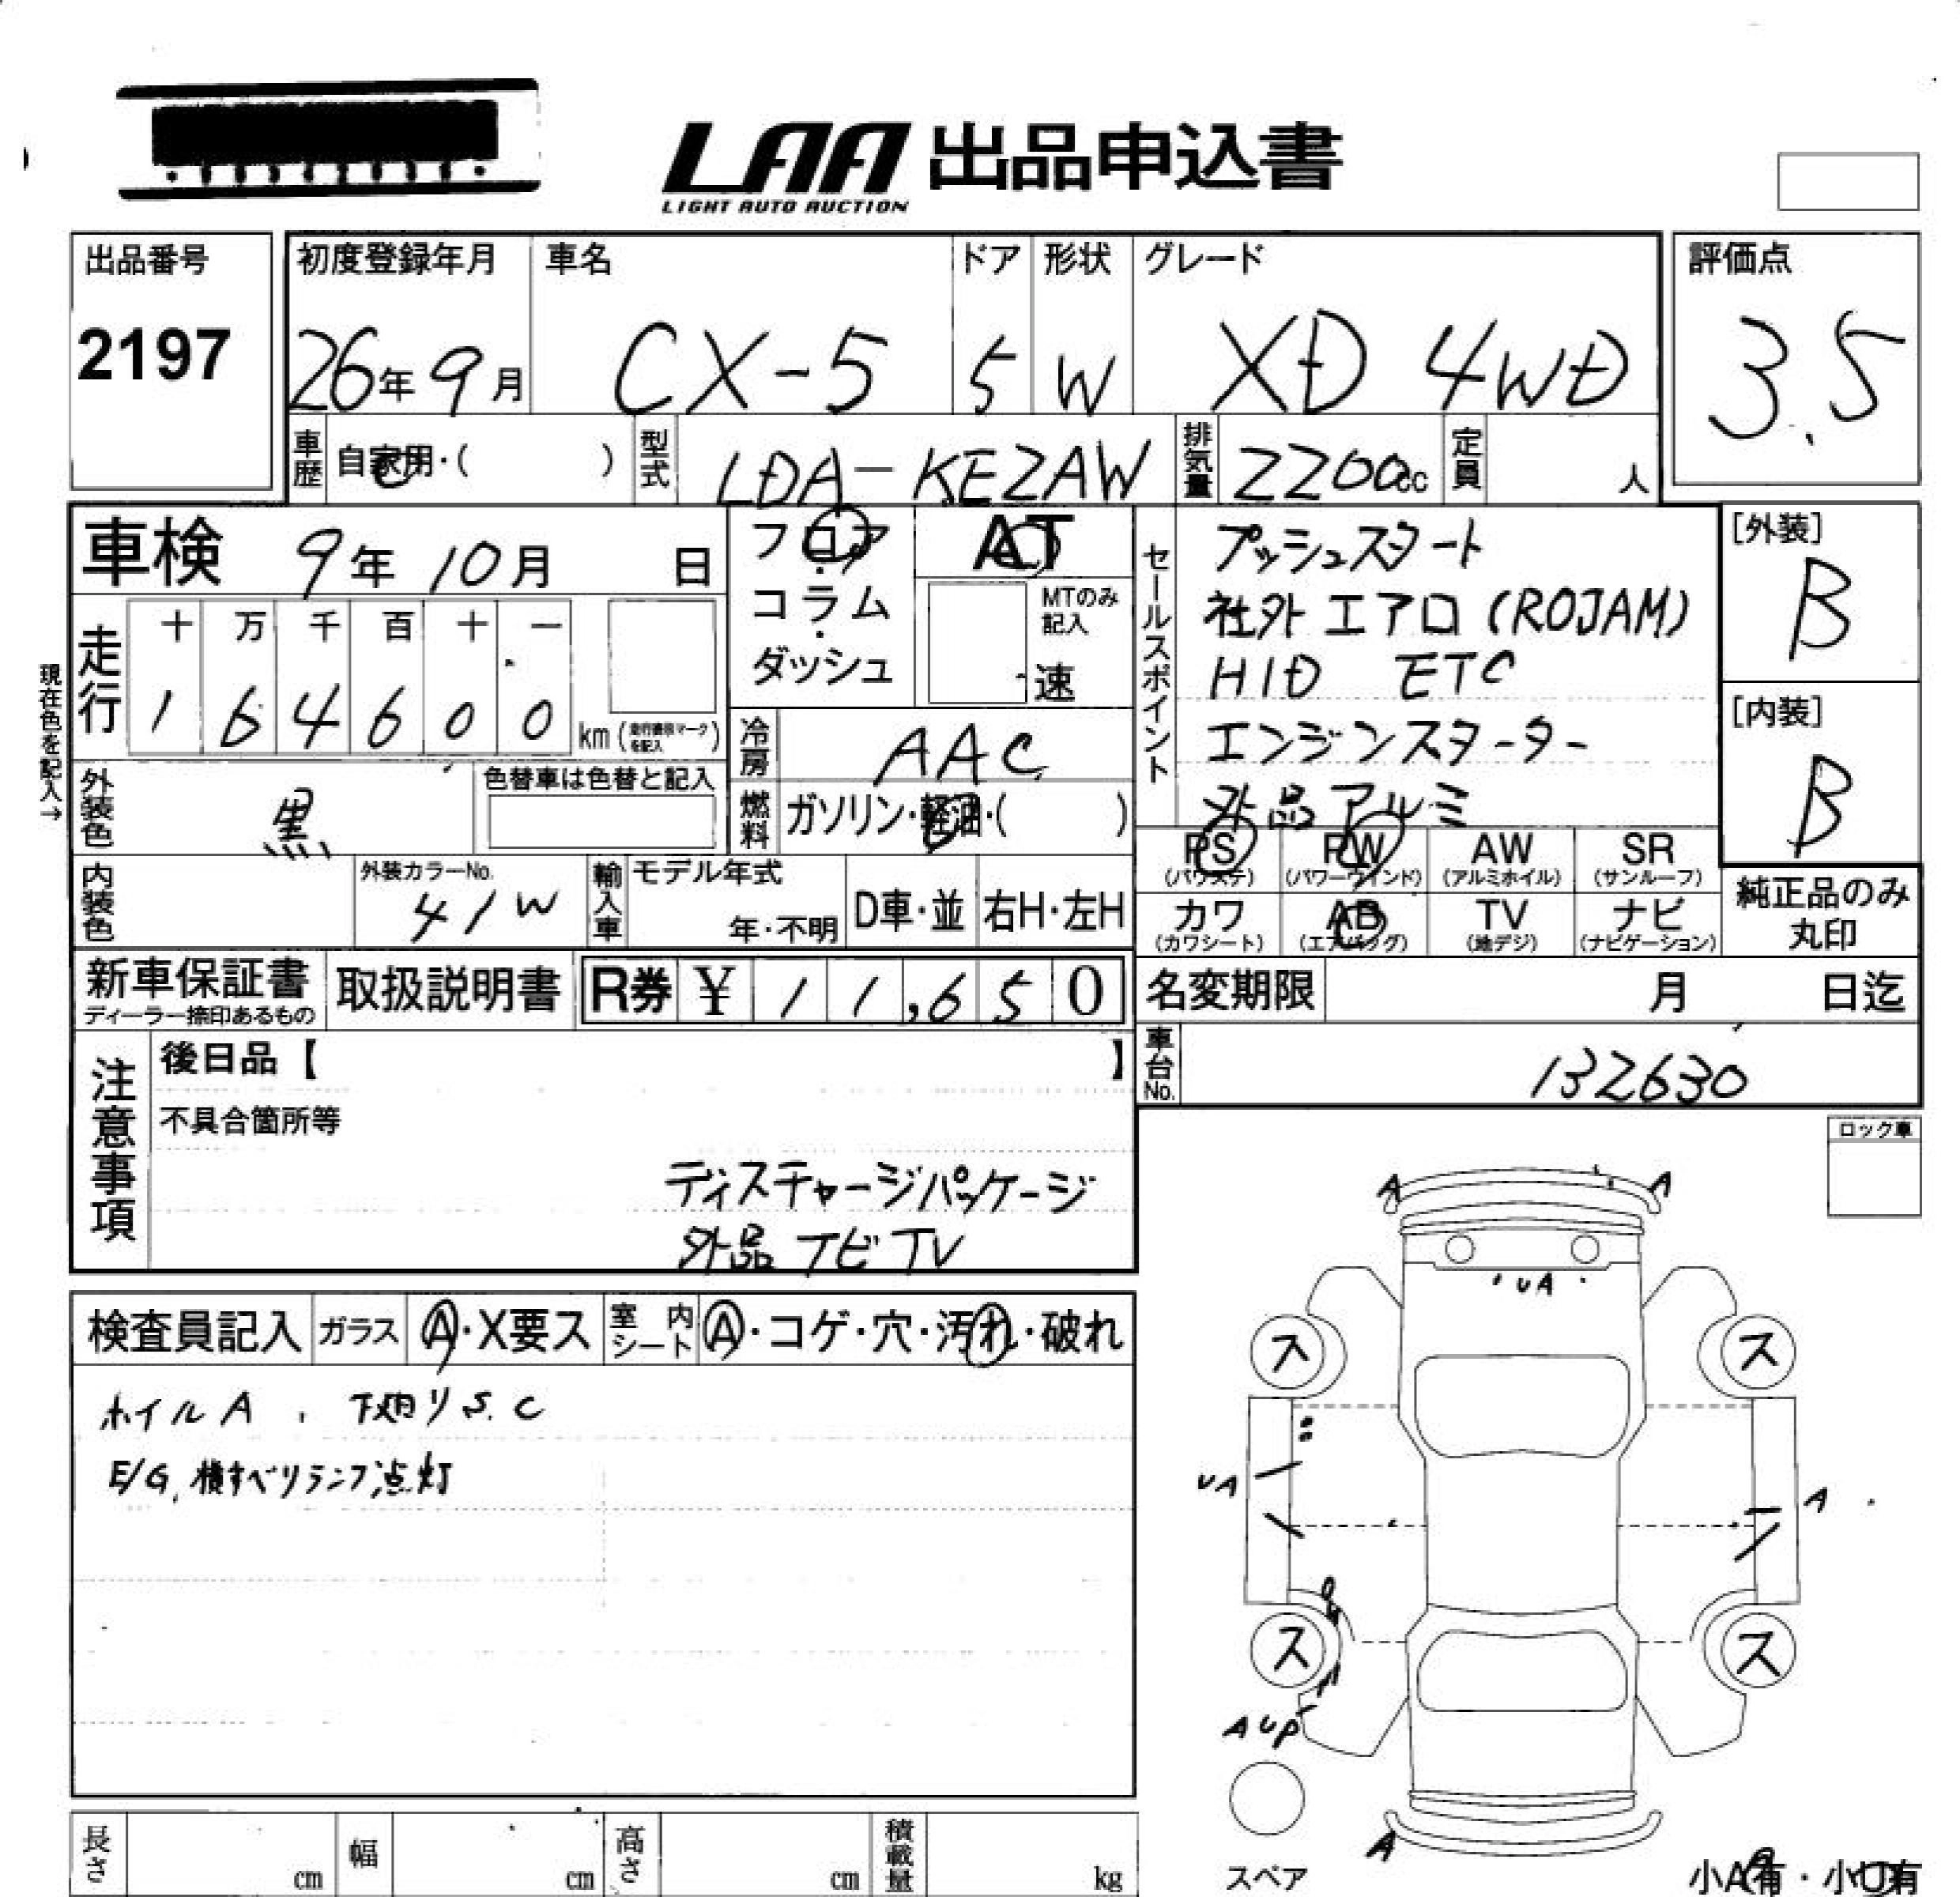 LAA 出品申込書
LIGHT AUTO AUCTION
出品番号
2197
初度登録年月
26年9月
車名
CX-5
ドア
5
形状
W
グレード
XD 4WD
評価点
3.5
車歴
自家用・( )
型式
LDA-KE2AW
排気量
2200cc
定員
人
車検 9年10月 日
フロア・コラム・ダッシュ
AT
MTのみ記入
速
セールスポイント
プッシュスタート
社外エアロ(ROJAM)
HID ETC
エンジンスターター
外品アルミ
[外装]
B
[内装]
B
現在色を記入→
走行
十 万 千 百 十 一
1 6 4 6 0 0
km
を記入
冷房
AAC
外装色
黒
色替車は色替と記入
燃料
ガソリン・軽油・( )
PS (パワステ)
PW (パワーウィンド)
AW (アルミホイル)
SR (サンルーフ)
カワ (カワシート)
AB (エアバッグ)
TV (地デジ)
ナビ (ナビゲーション)
純正品のみ
丸印
内装色
外装カラーNo.
41W
輸入車
モデル年式
年・不明
D車・並
右H・左H
新車保証書
ディーラー捺印あるもの
取扱説明書
R券 ¥ 11,650
名変期限 月 日迄
車台No.
132630
注意事項
後日品【 】
不具合箇所等
ディスチャージパッケージ
外品ナビTV
ロック車
検査員記入
ガラス
A・X要ス
室内シート
A・コゲ・穴・汚れ・破れ
ホイルA, 下廻りS.C
E/G, 横すべりランプ点灯
A
A
UA
ス
ス
UA
A
ス
ス
AUP
A
スペア
小A有・小U有
長さ cm
幅 cm
高さ cm
積載量 kg